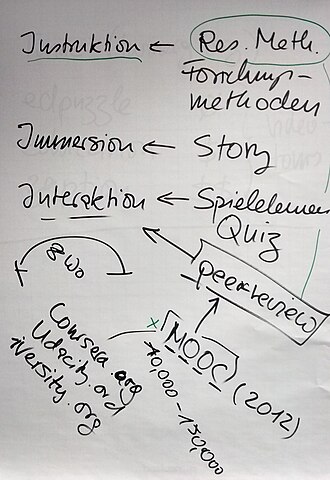 Instruktion ← Res. Meth.
Forschungs-
methoden
Immersion ← Story
Interaktion ← Spielelemen
Quiz
8 Wo
peerreview
x MOOC (2012)
Coursera.org
Udacity.org
iversity.org